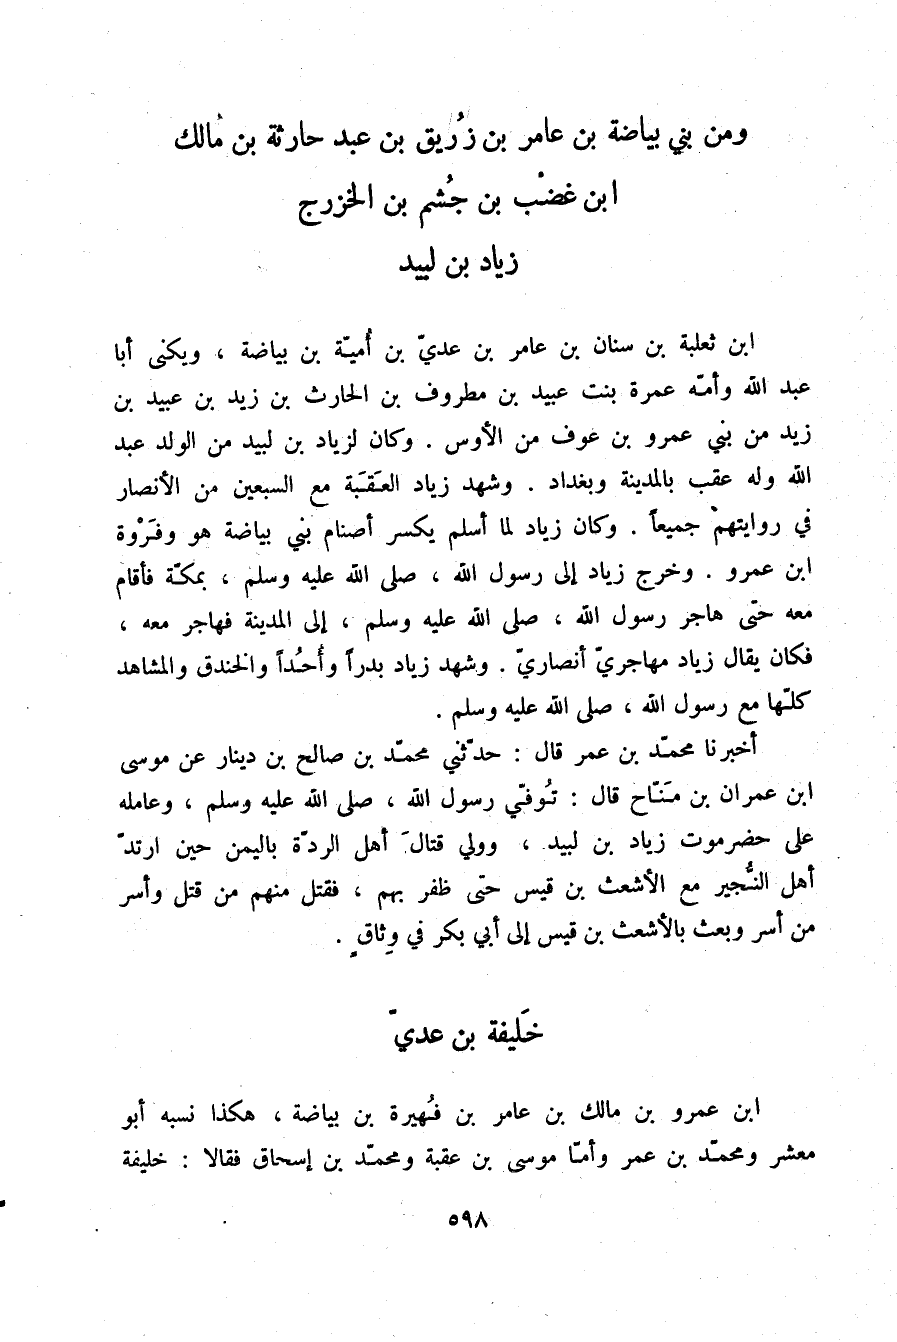 ومن بني بياضة بن عامر بن زُرَيق بن عبد حارثة بن مالك
ابن غضْب بن جُشم بن الخزرج
زياد بن لبيد
ابن ثعلبة بن سنان بن عامر بن عديّ بن أُميّة بن بياضة ، ويكنى أبا
عبد الله وأمّه عمرة بنت عبيد بن مطروف بن الحارث بن زيد بن عبيد بن
زيد من بني عمرو بن عوف من الأوس . وكان لزياد بن لبيد من الولد عبد
الله وله عقب بالمدينة وبغداد . وشهد زياد العَقَبَة مع السبعين من الأنصار
في روايتهم جميعاً . وكان زياد لما أسلم يكسر أصنام بني بياضة هو وفَرْوة
ابن عمرو . وخرج زياد إلى رسول الله ، صلى الله عليه وسلم ، بمكّة فأقام
معه حتّى هاجر رسول الله ، صلى الله عليه وسلم ، إلى المدينة فهاجر معه ،
فكان يقال زياد مهاجريّ أنصاريّ . وشهد زياد بدراً وأُحُداً والخندق والمشاهد
كلّها مع رسول الله ، صلى الله عليه وسلم .
أخبرنا محمّد بن عمر قال : حدّثني محمّد بن صالح بن دينار عن موسى
ابن عمران بن مَنّاح قال : تُوفّي رسول الله ، صلى الله عليه وسلم ، وعامله
على حضرموت زياد بن لبيد ، وولي قتالَ أهل الردّة باليمن حين ارتدّ
أهل النُّجير مع الأشعث بن قيس حتّى ظفر بهم ، فقتل منهم من قتل وأسر
من أسر وبعث بالأشعث بن قيس إلى أبي بكر في وِثاقٍ .
خَليفة بن عديّ
ابن عمرو بن مالك بن عامر بن فُهيرة بن بياضة ، هكذا نسبه أبو
معشر ومحمّد بن عمر وأمّا موسى بن عقبة ومحمّد بن إسحاق فقالا : خليفة
٥٩٨